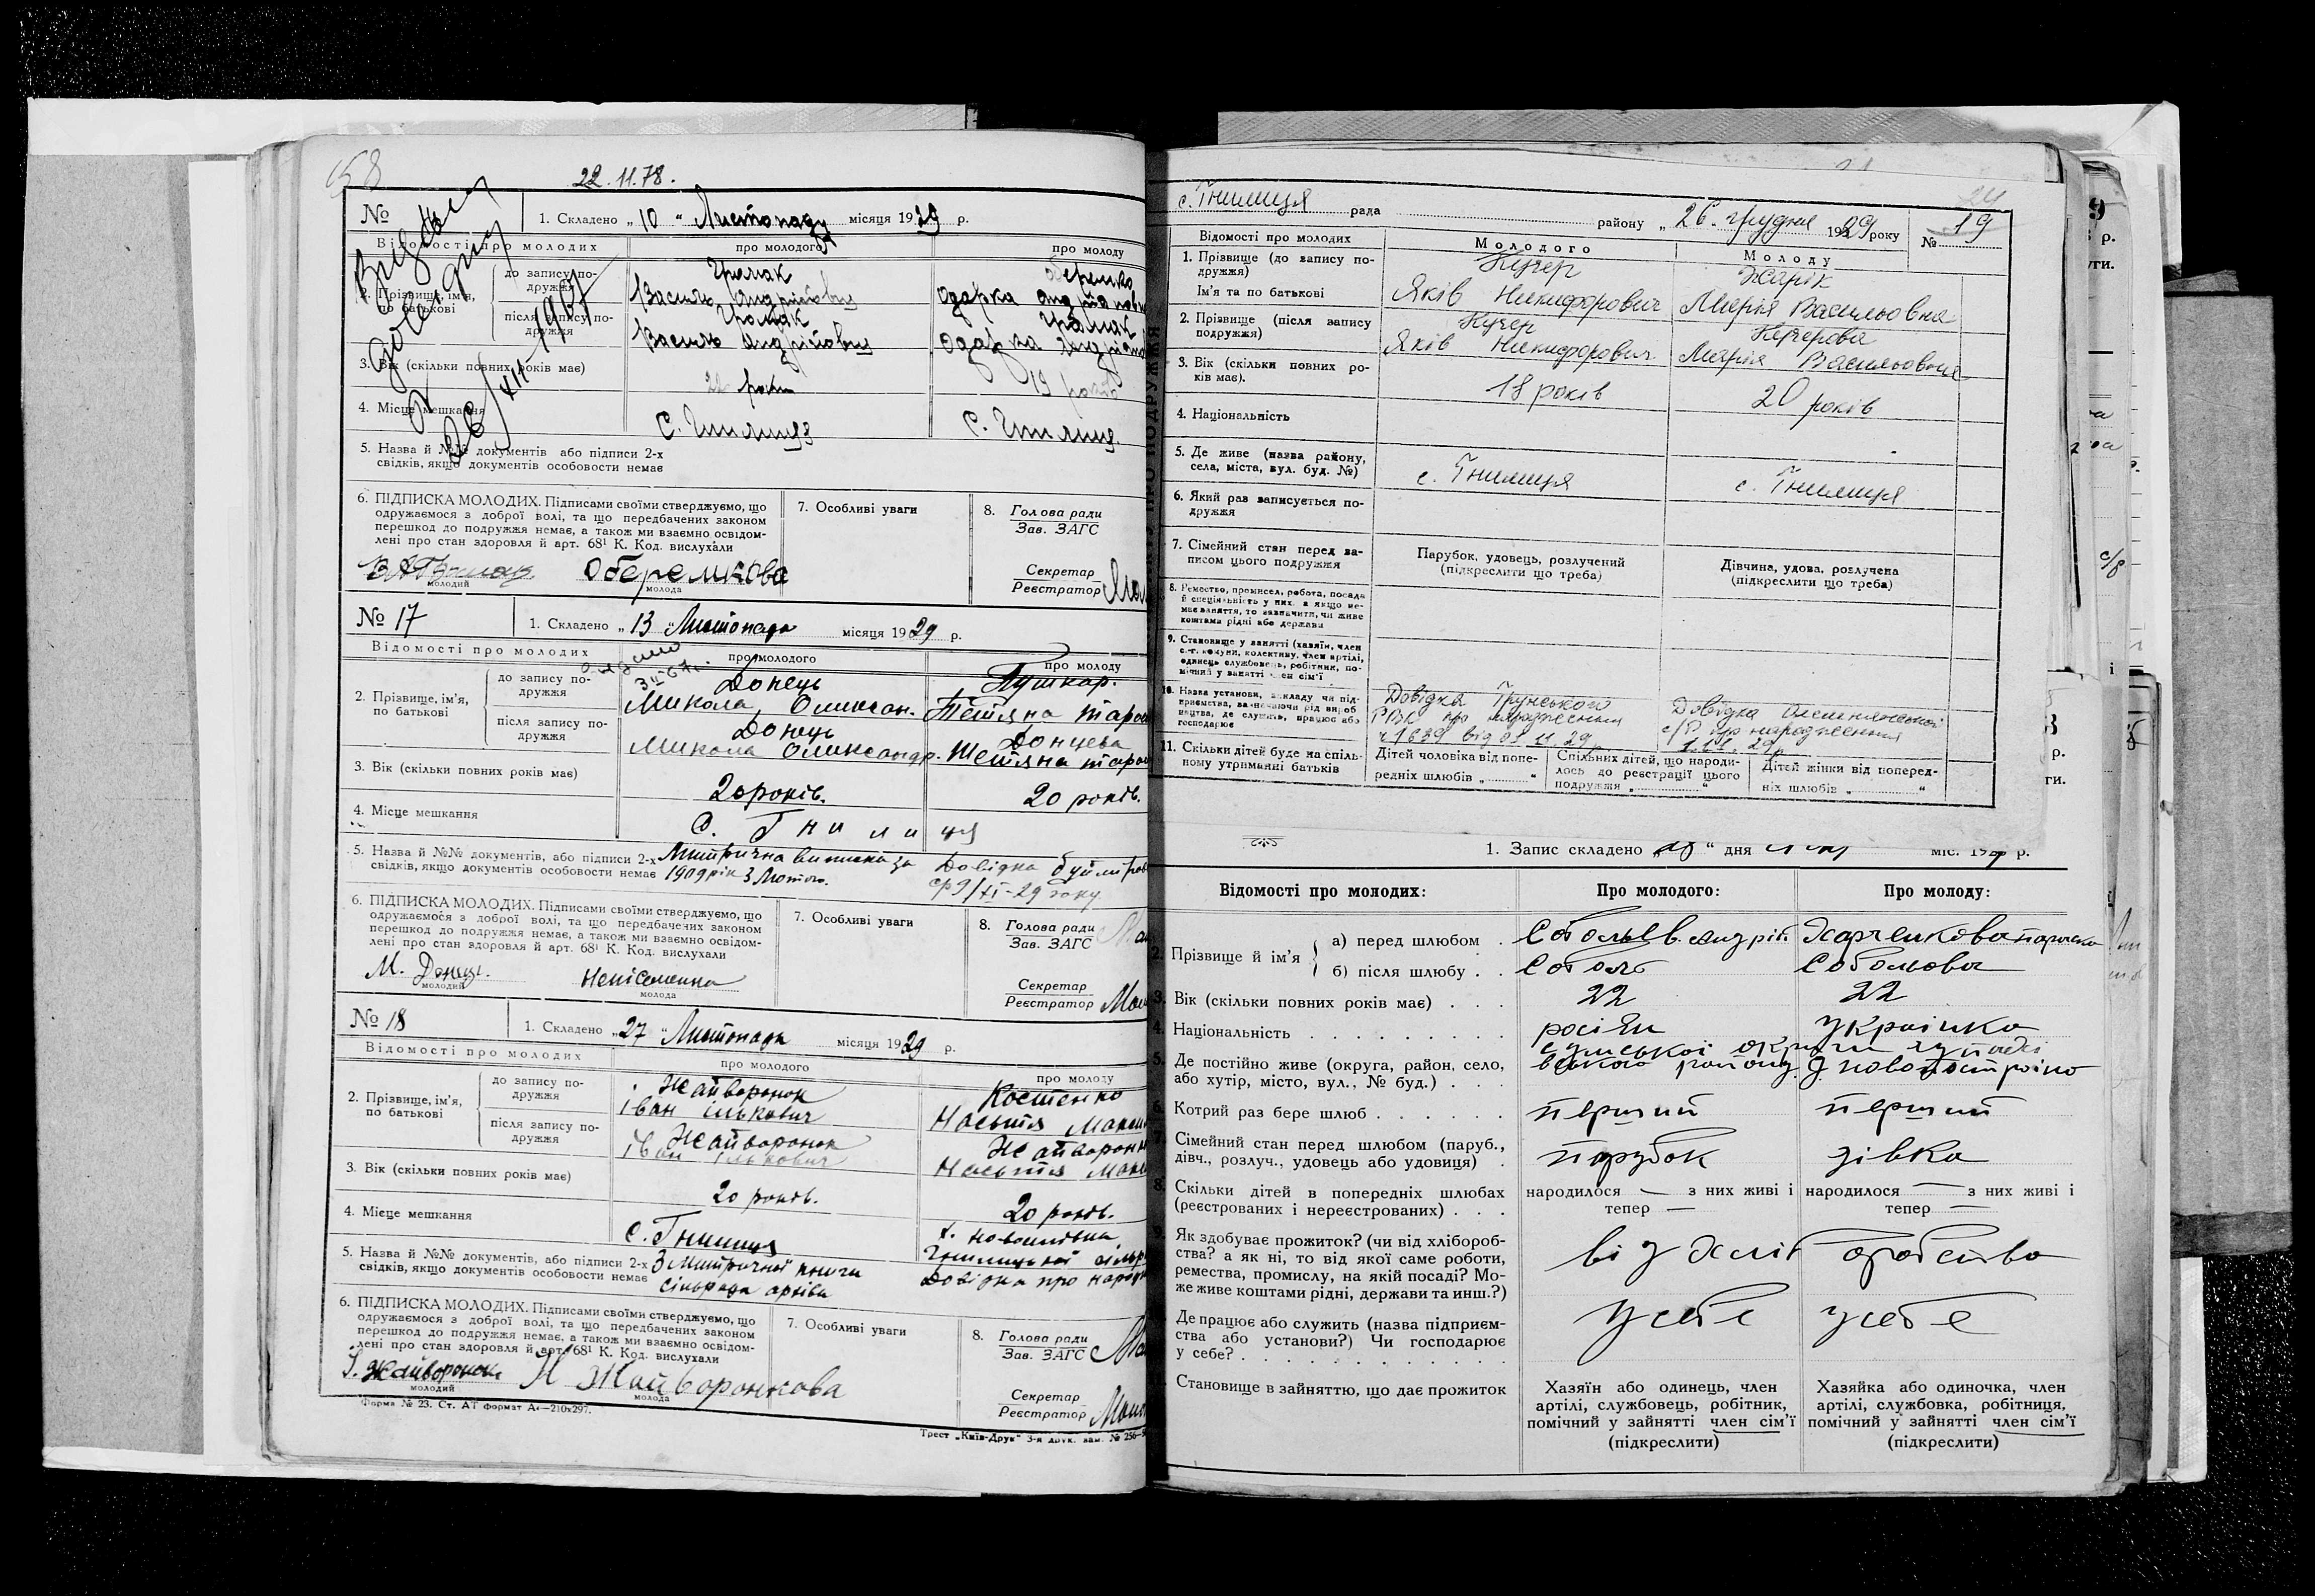 22.11.78.
№
1. Складено „10“ Листопаду місяця 1929 р.
Відомості про молодих
про молодого
про молоду
2. Прізвище, ім'я, по батькові
до запису подружжя
Василь Андрійович
Одарка
після запису подружжя
Василь Андрійович
Одарка
3. Вік (скільки повних років має)
22 роки
19 років
4. Місце мешкання
с. Гнилиця
с. Гнилиц.
5. Назва й №№ документів або підписи 2-х
свідків, якщо документів особовости немає
6. ПІДПИСКА МОЛОДИХ. Підписами своїми стверджуємо, що
одружаємося з доброї волі, та що передбачених законом
перешкод до подружжя немає, а також ми взаємно освідом-
лені про стан здоровля й арт. 68¹ К. Код. вислухали
7. Особливі уваги
8. Голова ради
Зав. ЗАГС
Секретар
Реєстратор
молодий
Оберемкова
молода
№ 17
1. Складено „13“ Листопада місяця 1929 р.
Відомості про молодих
про молодого
про молоду
2. Прізвище, ім'я, по батькові
до запису подружжя
Донець
Пушкар.
Микола Олександ.
Тетяна Тарас
після запису подружжя
Донець
Донцева
Микола Олександр.
Тетяна Тарас
3. Вік (скільки повних років має)
20 років.
20 років.
4. Місце мешкання
с. Гнилиця
5. Назва й №№ документів, або підписи 2-х
свідків, якщо документів особовости немає
Митрична виписка за
1909 рік 3 Лютого.
Довідка
6. ПІДПИСКА МОЛОДИХ. Підписами своїми стверджуємо, що
одружаємося з доброї волі, та що передбачених законом
перешкод до подружжя немає, а також ми взаємно освідом-
лені про стан здоровля й арт. 68¹ К. Код. вислухали
7. Особливі уваги
8. Голова ради
Зав. ЗАГС
Секретар
Реєстратор
М. Донець
молодий
Неписменна
молода
№ 18
1. Складено „27“ Листопада місяця 1929 р.
Відомості про молодих
про молодого
про молоду
2. Прізвище, ім'я, по батькові
до запису подружжя
Жайворонок
Костенко
Іван Ількович
Настя
після запису подружжя
Жайворонок
Жайворонк
Іван Ількович
Настя
3. Вік (скільки повних років має)
20 років.
20 років.
4. Місце мешкання
с. Гнилиця
5. Назва й №№ документів, або підписи 2-х
свідків, якщо документів особовости немає
З Митричної книги
сільради архіви
Довідка про народж
6. ПІДПИСКА МОЛОДИХ. Підписами своїми стверджуємо, що
одружаємося з доброї волі, та що передбачених законом
перешкод до подружжя немає, а також ми взаємно освідом-
лені про стан здоровля й арт. 68¹ К. Код. вислухали
7. Особливі уваги
8. Голова ради
Зав. ЗАГС
Секретар
Реєстратор
І. Жайворонок
молодий
Н Жайворонкова
молода
Форма № 23. Ст. АТ формат А4—210х297.
Трест „Київ-Друк“ 3-я друк. зам. № 256
с. Гнилиця рада району „26. грудня 1929 року № 19
Відомості про молодих
Молодого
Молоду
1. Прізвище (до запису по-
дружжя)
Ім'я та по батькові
Кучер
Жарік
Яків Никифорович
Марія Васильовна
2. Прізвище (після запису
подружжя)
Кучер
Кучерова
Яків Никифорович
Марія Васильовна
3. Вік (скільки повних ро-
ків має).
18 років
20 років
4. Національність
5. Де живе (назва району,
села, міста, вул. буд. №)
с. Гнилиця
с. Гнилиця
6. Який раз записується по-
дружжя
7. Сімейний стан перед за-
писом цього подружжя
Парубок, удовець, розлучений
(підкреслити що треба)
Дівчина, удова, розлучена
(підкреслити що треба)
8. Ремество, промисел, робота, посада
й спеціяльність у них, а якщо не-
має заняття, то зазначити, чи живе
коштами рідні або держави
9. Становище у занятті (хазяїн, член
с.-г. комуни, колективу, член артілі,
одинець службовець, робітник, по-
мічний у занятті член сім'ї
10. Назва установи, закладу чи під-
приємства, зазначаючи рід вироб
ництва, де служить, працює або
господарює
Довідка Грунського
РВК про народження
Довідка
с/Р про народження
11. Скільки дітей буде на спіль-
ному утриманні батьків
Дітей чоловіка від попе-
редніх шлюбів „ “
Спільних дітей, що народи-
лось до реєстрації цього
подружжя „ “
Дітей жінки від поперед-
ніх шлюбів „ “
1. Запис складено „ “ дня міс. 19 р.
Відомості про молодих:
Про молодого:
Про молоду:
2. Прізвище й ім'я
а) перед шлюбом
Андрій
Харченкова
б) після шлюбу
Соболь
Собольова
3. Вік (скільки повних років має)
22
22
4. Національність
українка
5. Де постійно живе (округа, район, село,
або хутір, місто, вул., № буд.)
Сумської округи
району
6. Котрий раз бере шлюб
перший
перший
7. Сімейний стан перед шлюбом (паруб.,
дівч., розлуч., удовець або удовиця)
парубок
дівка
8. Скільки дітей в попередніх шлюбах
(реєстрованих і нереєстрованих)
народилося — з них живі і
тепер —
народилося — з них живі і
тепер —
9. Як здобуває прожиток? (чи від хлібороб-
ства? а як ні, то від якої саме роботи,
ремества, промислу, на якій посаді? Мо-
же живе коштами рідні, держави та инш.?)
від хліборобства
Де працює або служить (назва підприєм-
ства або установи?) Чи господарює
у себе?
у себе
у себе
Становище в зайняттю, що дає прожиток
Хазяїн або одинець, член
артілі, службовець, робітник,
помічний у зайнятті член сім'ї
(підкреслити)
Хазяйка або одиночка, член
артілі, службовка, робітниця,
помічний у зайнятті член сім'ї
(підкреслити)